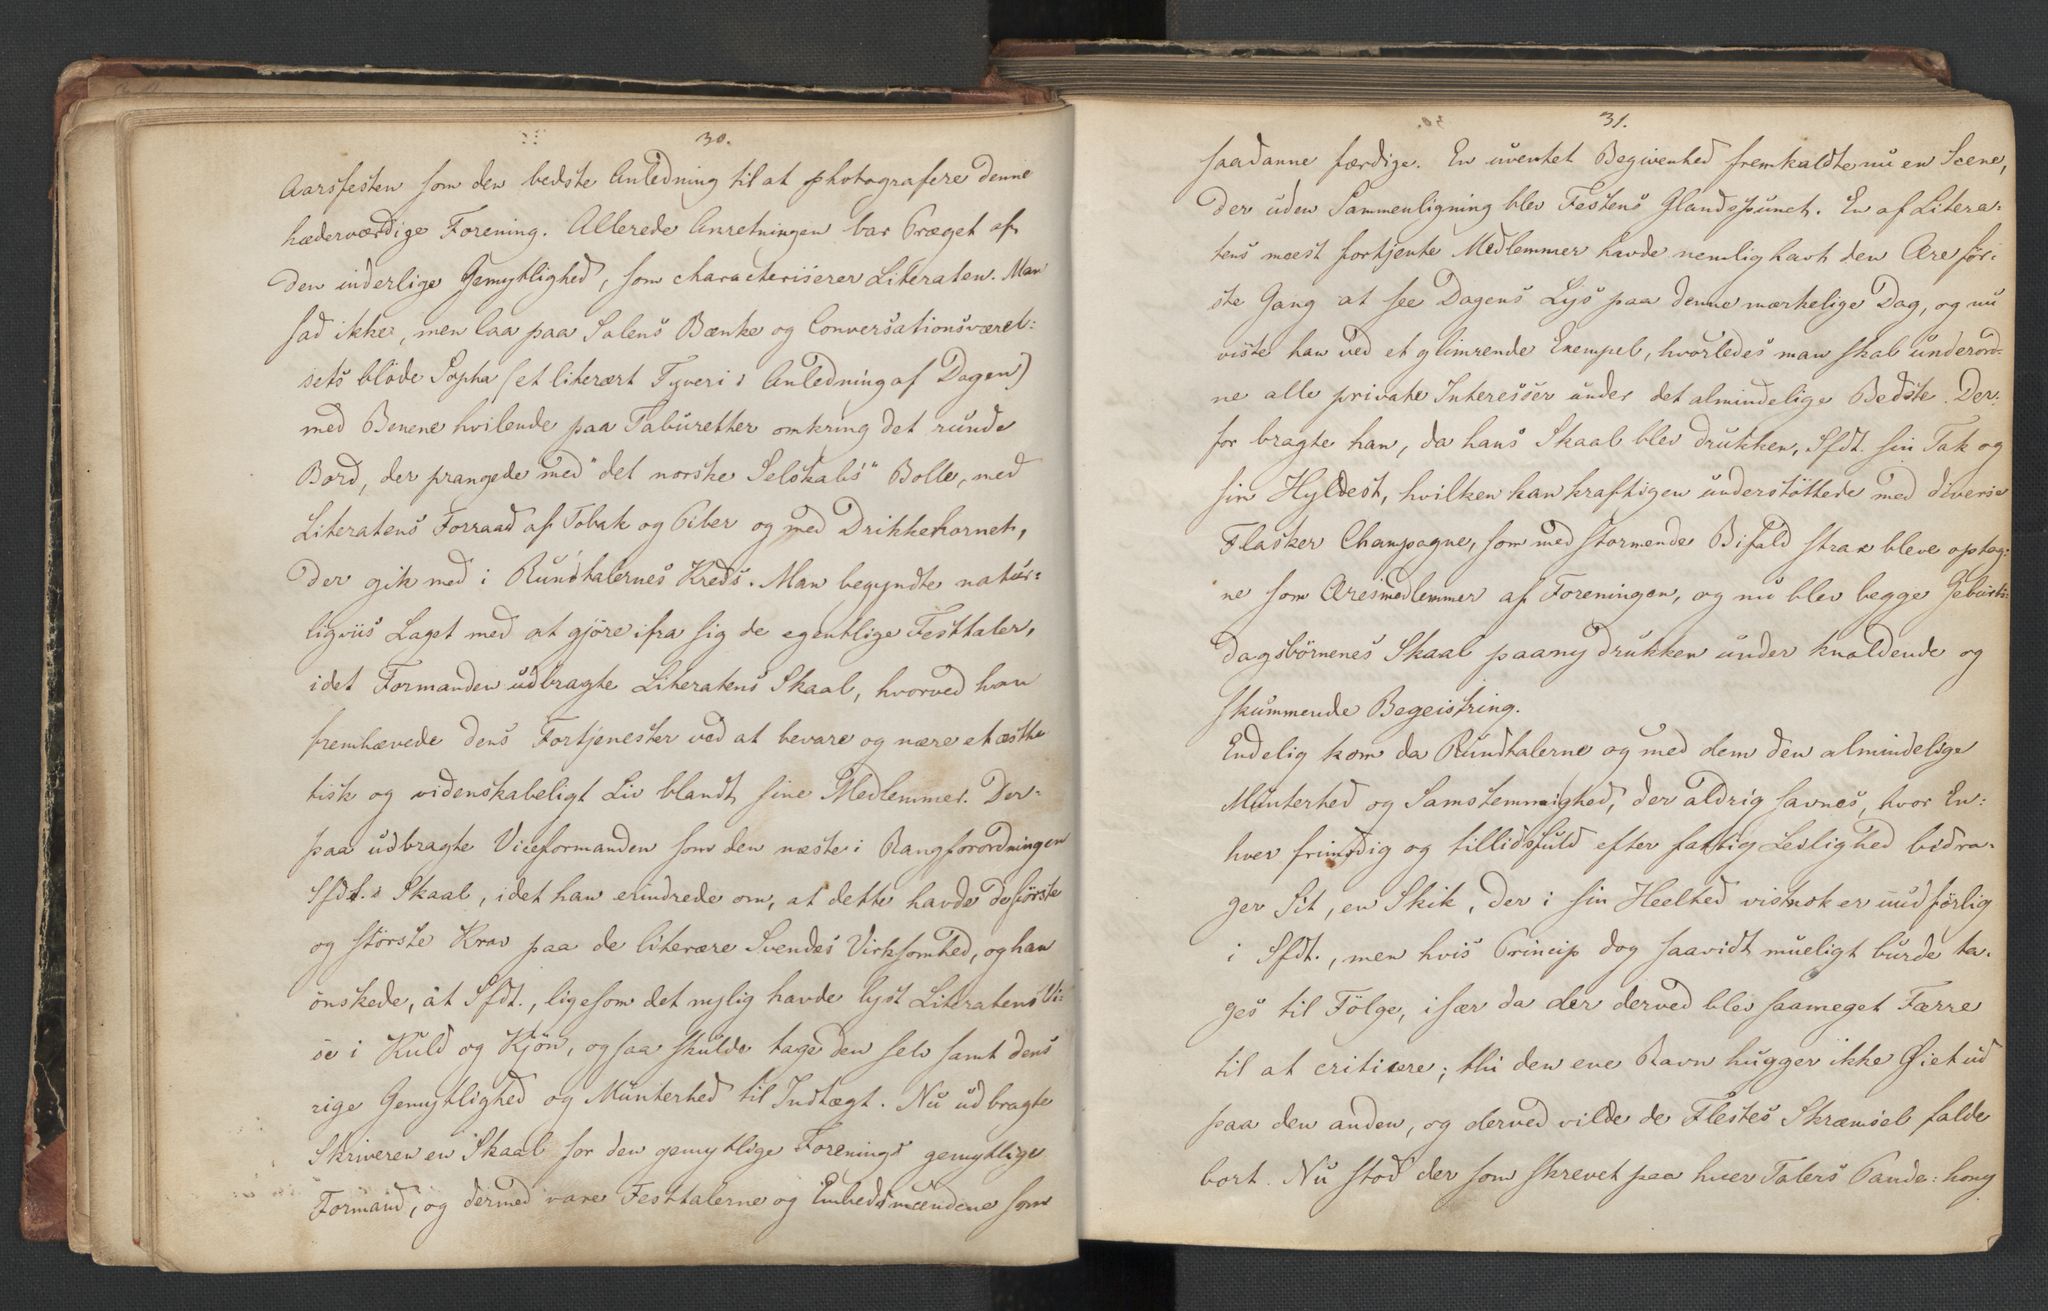 30.
Aarsfesten som den bedste Anledning til at photografere denne
hæderværdige Forening. Allerede Anretningen bar Præget af
den inderlige Gemytlighed, som characteriserer Literaten. Man
sad ikke, men laa paa Salens Bænke og Conversationsværel-
sets bløde Sopha (et literært Tyveri i Anledning af Dagen)
med Benene hvilende paa Taburetter omkring det runde
Bord, der prangede med "det norske Selskabs" Bolle, med
Literatens Forraad af Tobak og Piber og med Drikkehornet,
der gik med i Rundtalernes Kreds. Man begyndte natur-
ligviis Laget med at gjøre ifra sig de egentlige Festtaler,
idet Formanden udbragte Literatens Skaal, hvorved han
fremhævede dens Fortjenester ved at bevare og nære et æsthe
tisk og videnskabeligt Liv blandt sine Medlemmer. Der-
paa udbragte Viceformanden som den næste i Rangforordningen
Sfdt.s Skaal, idet han erindrede om, at dette havde de første
og største Krav paa de literære Svendes Virksomhed, og han
ønskede, at Sfdt., ligesom det nylig havde lyst Literatens Vi-
se i Kuld og Kjøn, ogsaa skulde tage den selv samt dens
rige Gemytlighed og Munterhed til Indtægt. Nu udbragte
Skriveren en Skaal for den gemytlige Forenings gemytlige
Formand, og dermed vare Festtalerne og Embedsmændene som
31.
saadanne færdige. En uventet Begivenhed fremkaldte nu en Scene,
der uden Sammenligning blev Festens Glandspunct. En af Litera-
tens meest fortjente Medlemmer havde nemlig havt den Ære før-
ste Gang at see Dagens Lys paa denne mærkelige Dag, og nu
viste han ved et glimrende Exempel, hvorledes man skal underord-
ne alle private Interesser under det almindelige Bedste. Der-
for bragte han, da hans Skaal blev drukken, Sfdt. sin Tak og
sin Hyldest, hvilken han kraftigen understøttede med diverse
Flasker Champagne, som med stormende Bifald strax bleve optag-
ne som Æresmedlemmer af Foreningen, og nu blev begge Geburts-
dagsbørnenes Skaal paany drukken under knaldende og
skummende Begeistring.
Endelig kom da Rundtalerne og med dem den almindelige
Munterhed og Samstemmighed, der aldrig savnes, hvor En-
hver frimodig og tillidsfuld efter fattig Leilighed bidra-
ger Sit, en Skik, der i sin Heelhed vistnok er uudførlig
i Sfdt., men hvis Princip dog saavidt mueligt burde ta-
ges til Følge, især da der derved blev saameget Færre
til at criticere; thi den ene Ravn hugger ikke Øiet ud
paa den anden, og derved vilde de Flestes Skræmsel falde
bort. Nu stod der som skrevet paa hver Talers Pande: hony